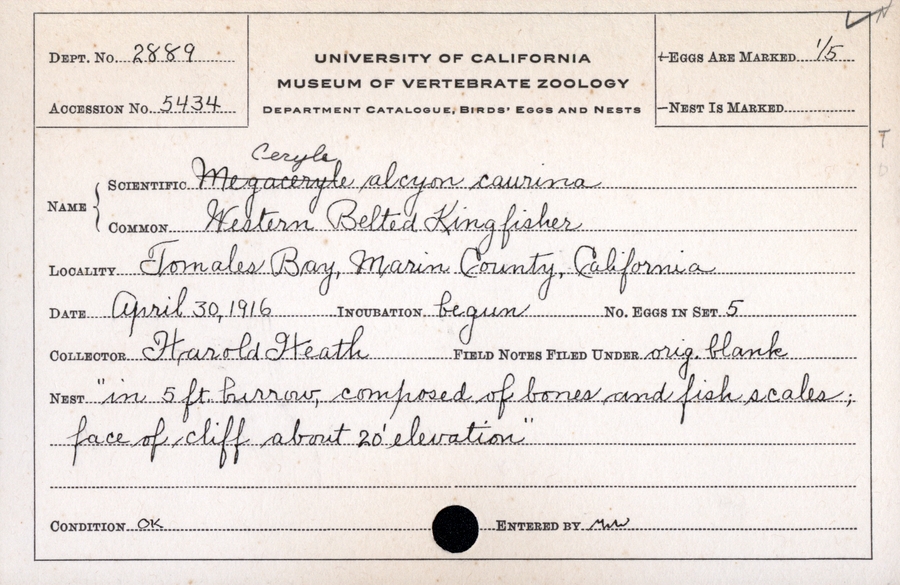 DEPT. No. 2889
ACCESSION No. 5434
UNIVERSITY OF CALIFORNIA
MUSEUM OF VERTEBRATE ZOOLOGY
DEPARTMENT CATALOGUE, BIRDS' EGGS AND NESTS
EGGS ARE MARKED 1/5
NEST IS MARKED
Ceryle
NAME
SCIENTIFIC Megaceryle alcyon caurina
COMMON Western Belted Kingfisher
LOCALITY Tomales Bay, Marin County, California
DATE April 30, 1916 INCUBATION begun No. EGGS IN SET 5
COLLECTOR Harold Heath FIELD NOTES FILED UNDER orig. blank
NEST "in 5 ft. burrow, composed of bones and fish scales;
face of cliff about 20' elevation"
CONDITION OK ENTERED BY